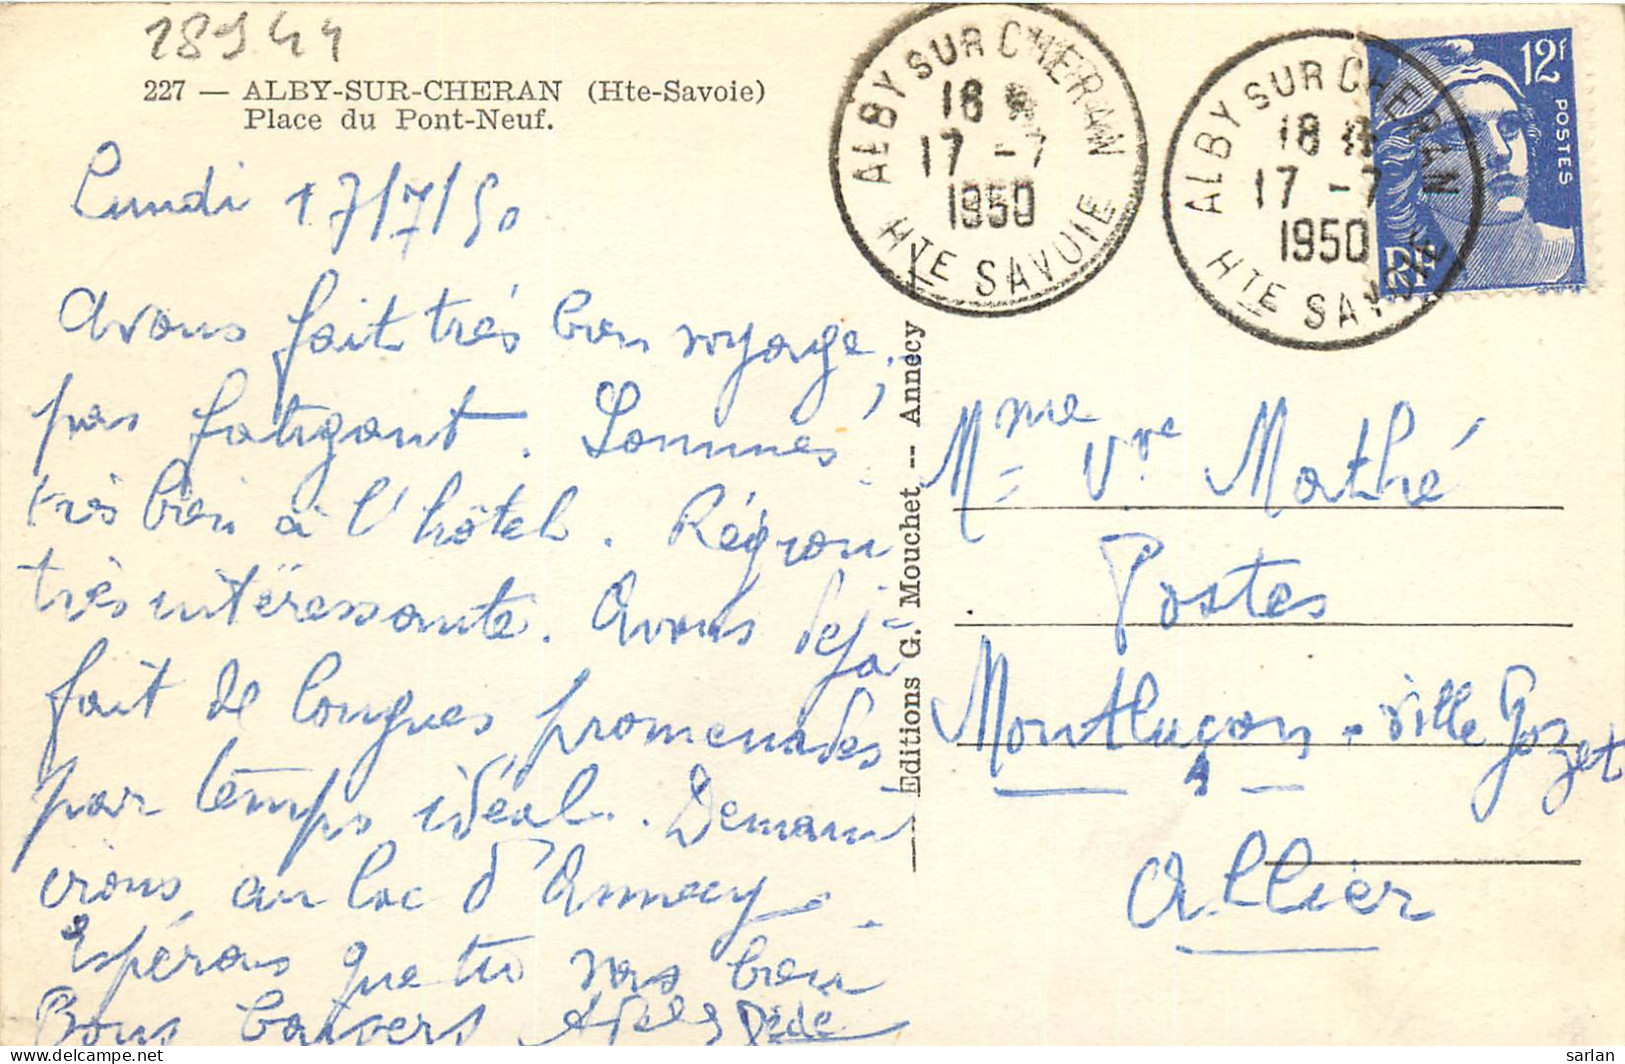 28944
227 — ALBY-SUR-CHERAN (Hte-Savoie)
Place du Pont-Neuf.
Lundi 17/7/50
Avons fait très bon voyage,
pas fatigant. Sommes
très bien à l'hôtel. Région
très intéressante. Avons déjà
fait de longues promenades
par temps idéal. Demain
irons au lac d'Annecy.
Espérons que tu vas bien
Bons baisers Dédé
Editions G. Mouchet -- Annecy
ALBY SUR CHERAN
18
17 -7
1950
HTE SAVOIE
ALBY SUR CHERAN
18
17 -7
1950
HTE SAVOIE
12F
POSTES
RF
Mme Vve Mathé
Postes
Montluçon - Ville Gozet
Allier
sarlan